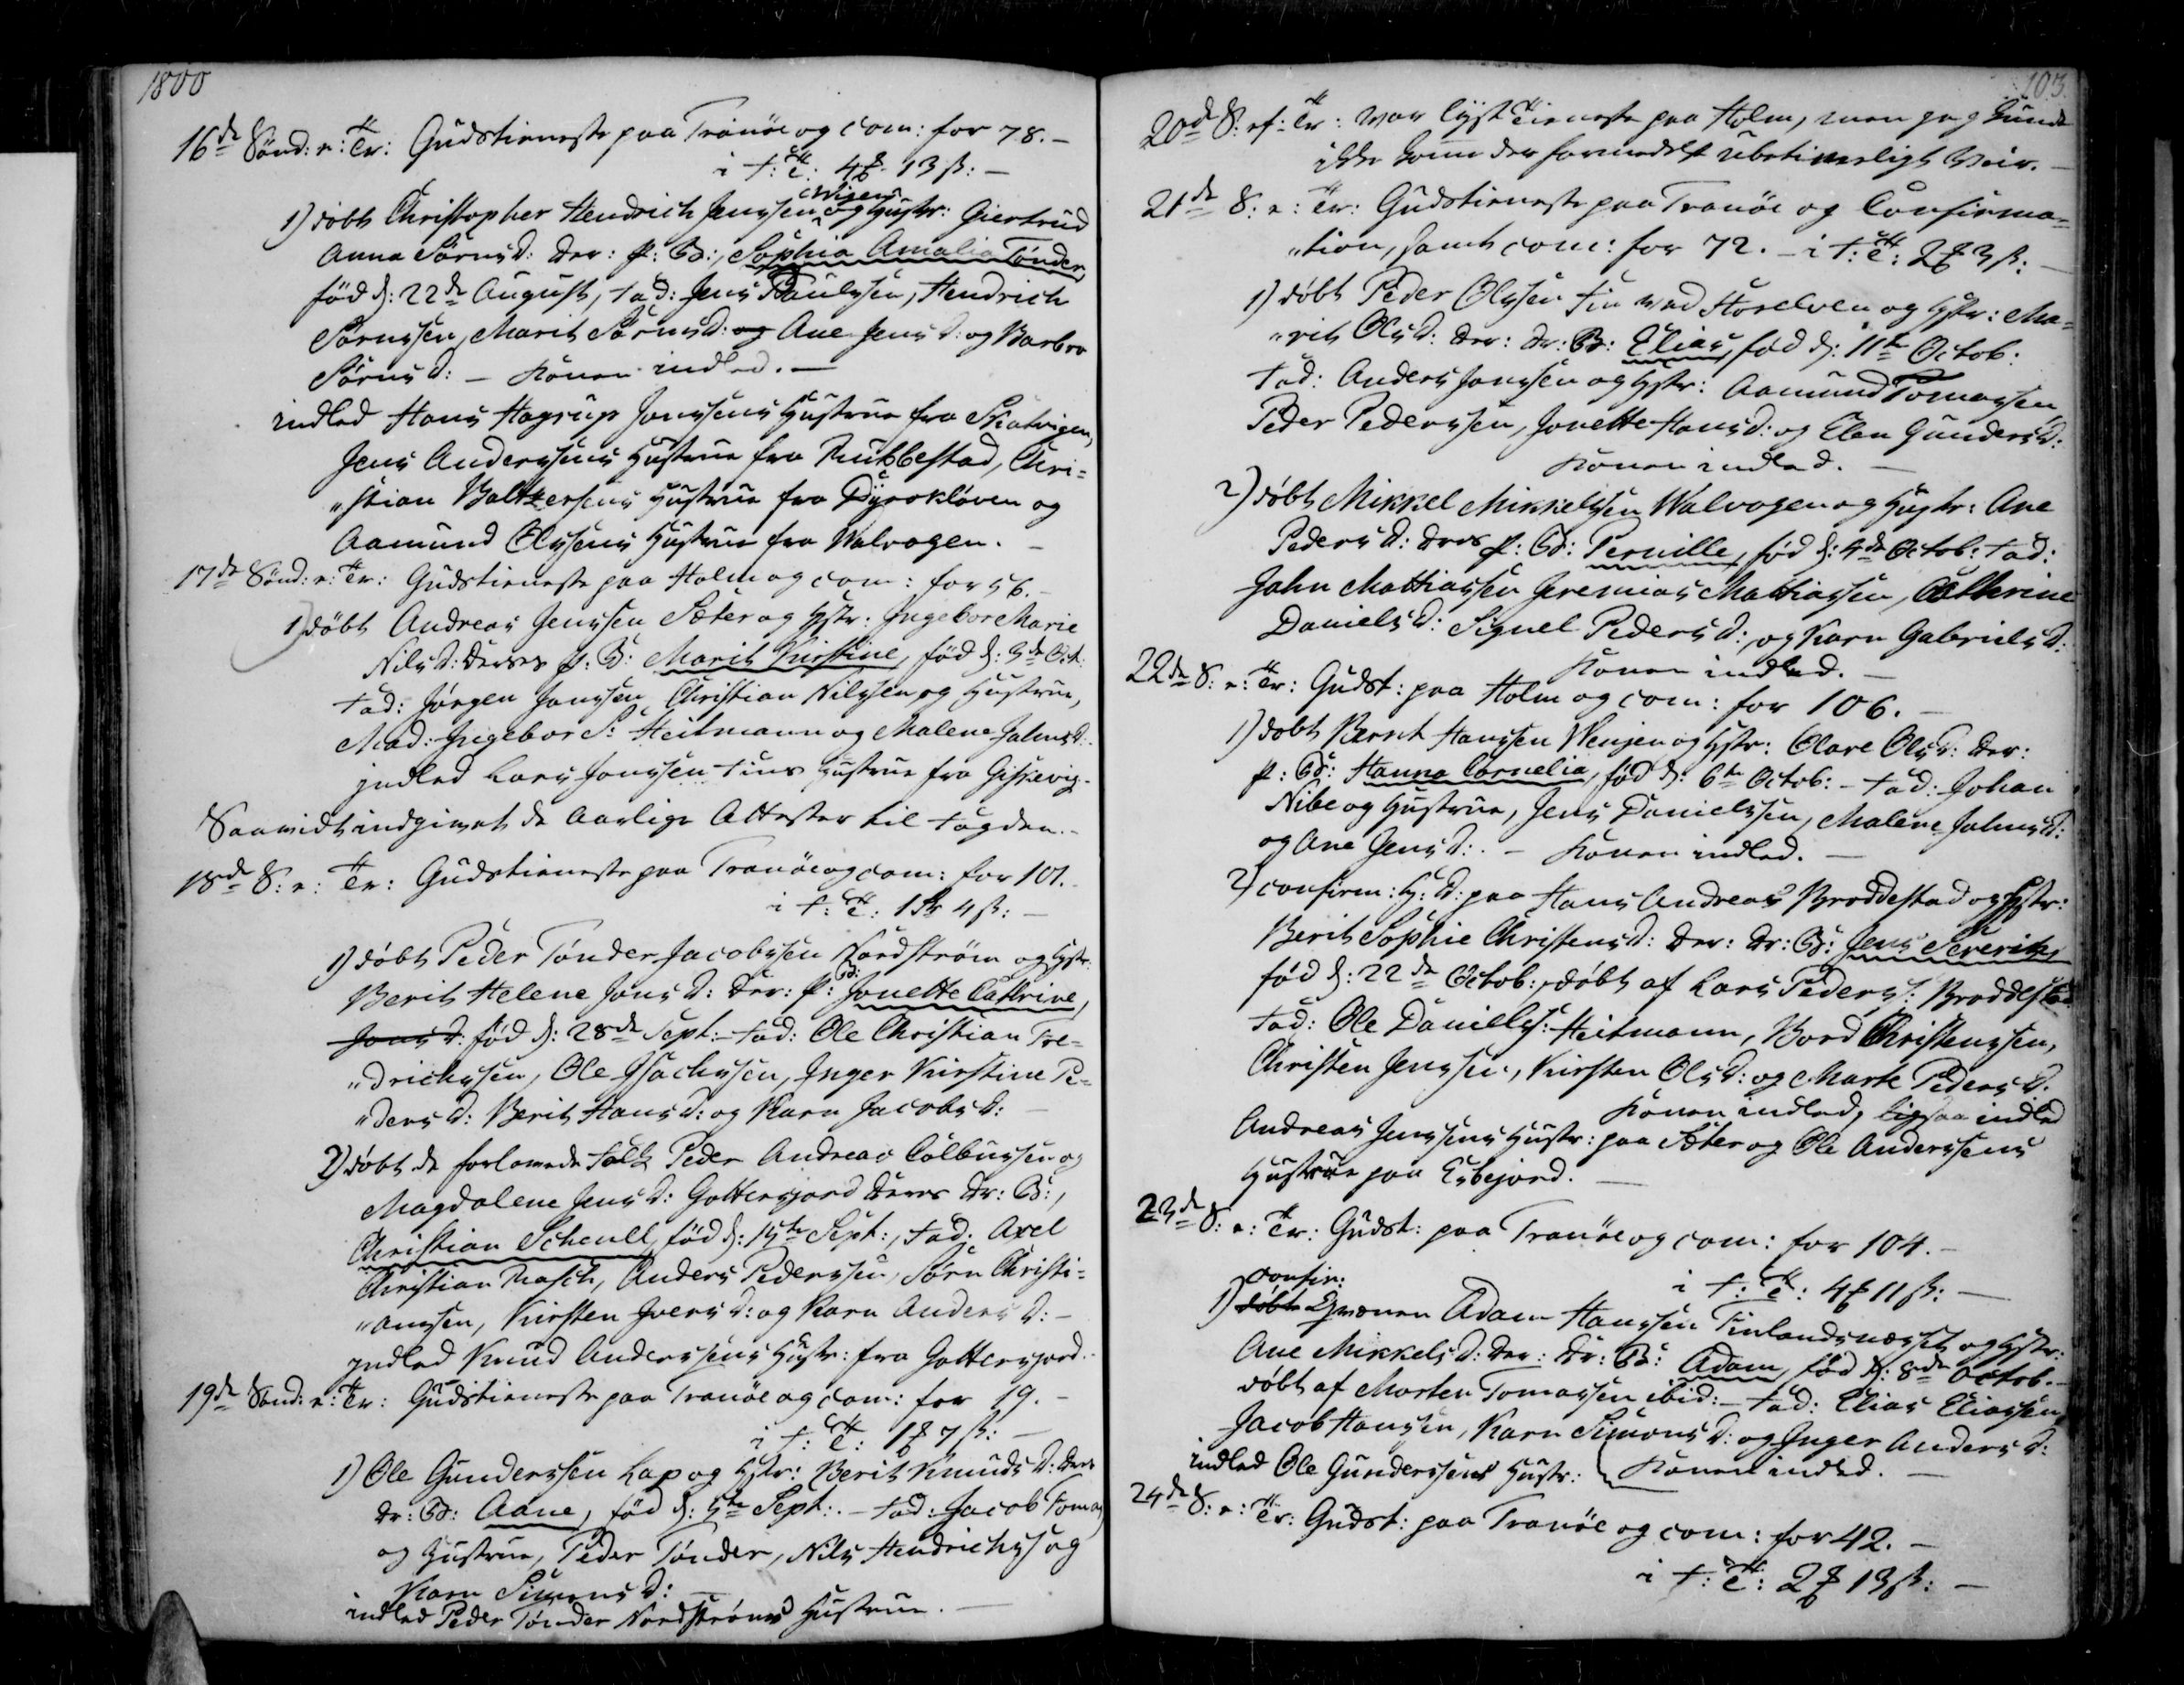 1800
16de Sönd: e: Tr: Gudstieneste paa Tranöe og com: for 78. -
i T: T: 4 13 ß: -
Vigen
1) döbt Christopher Hendrich Jenssen og Hustr: Giertrud
Anna Sörensd: der: p: B:, Sophia Amalia Tönder,
föd d: 22de August, Fad: Jens Paulssen, Hendrich
Sörenssen, Marit Sörensd: og Ane Jensd: og Barbro
Sörensd: - Konen indled. -
indled Hans Hagrup Jonssens Hustrue fra Skatvigen,
Jens Anderssens Hustrue fra Rubbestad, Chri-
„stian Baltzersens Hustrue fra Dyreklöven og
Aamund Olssens Hustrue fra Valvogen. -
17de Sönd: e: Tr: Gudstieneste paa Holm og com: for 56. -
1) döbt Andreas Jenssen Sæter og Hstr: Ingebor Marie
Nilsd: deres p: B: Marit Kirstine, föd d: 3de Oct:
Fad: Jörgen Jonssen, Christian Nilssen og Hustrue,
Mad: Ingebor S: Heitmann og Malene Johnsd: -
indled Lars Jonssen Fins Hustrue fra Giskevig. -
Saavidt indgivet de Aarlige Attester til Fogden. -
18de S: e: Tr: Gudstieneste paa Tranöe og com: for 101. -
i T: T: 1 4 ß: -
1) döbt Peder Tönder Jacobssen Nordström og Hstr:
B:
Berit Helene Jonsd: der: p: Jonette Cathrine,
Jonsd: föd d: 28de Sept: - Fad: Ole Christian Fre-
„drichssen, Ole Isachssen, Inger Kirstine Pe-
„dersd: Berit Hansd: og Karn Jacobsd: -
2) döbt de forlovede Folk Peder Andreas Colbenssen og
Magdalene Jensd: Gottesjord deres dr: B:,
Christian Schenll, föd d: 15te Sept:, Fad: Axel
Christian Rasch, Anders Pederssen, Sörn Christi-
„anssen, Kirsten Iversd: og Karn Andersd: -
indled Knud Anderssens Hustr: fra Gottesjord. -
19de Sönd: e: Tr: Gudstieneste paa Tranöe og com: for 19. -
i T: T: 1 7 ß: -
1) Ole Gunderssen Lap og Hstr: Berit Knudsd: der:
dr: B: Aane, föd d: 5te Sept: - Fad: Jacob Tomas
og Hustrue, Peder Tönder, Nils Hendrichs: og
Karn Simonsd: -
indled Peder Tönder Nordströms Hustrue. -
103
20de S: ef: Tr: var lyst Tieneste paa Holm, men jeg kunde
ikke komme der formedelst ubetimeligt Veir. -
21de S: e: Tr: Gudstieneste paa Tranöe og Confirma-
„tion, samt com: for 72. - i T: T: 2 3 ß: -
1) döbt Peder Olssen Fin ved Storelven og Hstr: Ma-
„rit Olsd: der: dr: B: Elias, föd d: 11te Octob:
Fad: Anders Jonssen og Hstr: Aamund Tomassen
Peder Pederssen, Jonette Hansd: og Elen Gundersd:
Konen indled. -
2) döbt Mikkel Mikkelssen Valvogen og Hustr: Ane
Pedersd: deres p: B: Pernille, föd d: 4de Octob: Fad:
John Mattiassen Jeremias Mattiassen, Cathrine
Danielsd: Signel Pedersd: og Karn Gabrielsd:
Konen indled. -
22de S: e: Tr: Gudst: paa Holm og com: for 106. -
1) döbt Bernt Hanssen Vengen og Hstr: Olave Olsd: der:
p: B: Hanna Cornelia, föd d: 6te Octob: - Fad: Johan
Nibe og Hustrue, Jens Danielssen, Malene Johnsd:
og Ane Jensd: - Konen indled. -
2) confirm: H: D: paa Hans Andreas Broddestad og Hstr:
Berit Sophie Christensd: der: dr: B: Jens Severin,
föd d: 22de Octob:, döbt af Lars Peders: Broddestad
Fad: Ole Daniells: Heitmann, Bord Christenssen,
Christen Jenssen, Kirsten Olsd: og Marte Pedersd:
Konen indled, ligesaa indled
Andreas Jenssens Hustr: paa Sæter og Ole Anderssens
Hustrue paa Esbejord. -
23de S: e: Tr: Gudst: paa Tranöe og com: for 104. -
i T: T: 4 11 ß: -
confir:
1) döbt Qvænen Adam Hanssen Finlandsnæsset og Hstr:
Ane Mikkelsd: der: dr: B: Adam, föd d: 8de Octob. -
döbt af Morten Tomassen ibid: - Fad: Elias Eliassen,
Jacob Hanssen, Karn Simonsd: og Inger Andersd:
indled Ole Gunderssens Hustr: Konen indled. -
24de S: e: Tr: Gudst: paa Tranöe og com: for 42. -
i T: T: 2 13 ß: -